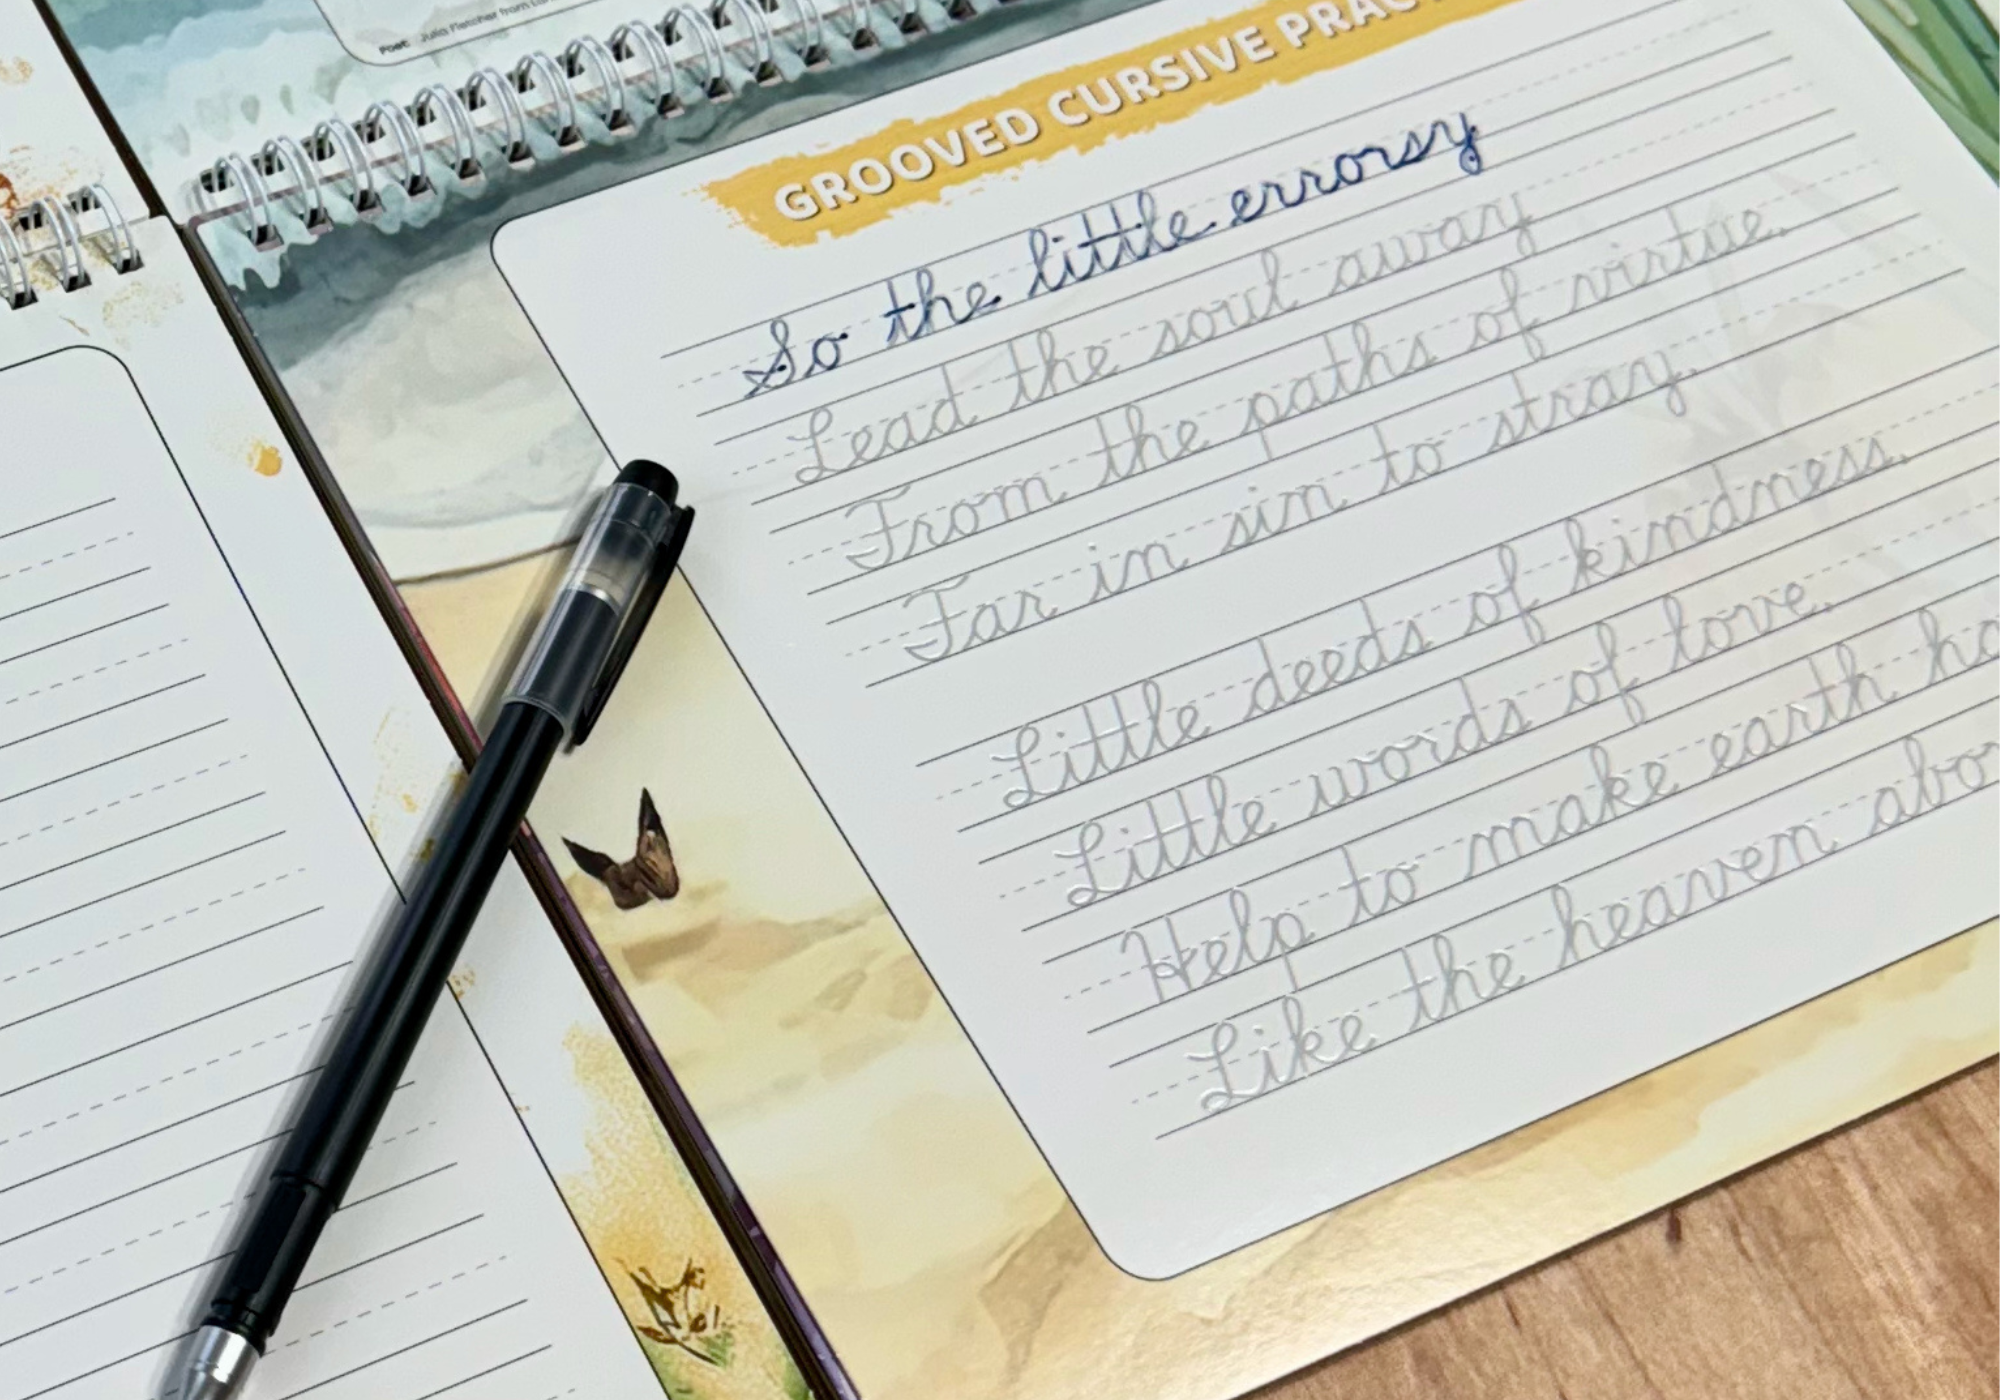 Poet: Julia Fletcher from
GROOVED CURSIVE
So the little errorsy
Lead the soul away
From the paths of virtue,
Far in sin to stray.
Little deeds of kindness,
Little words of love,
Help to make earth
Like the heaven